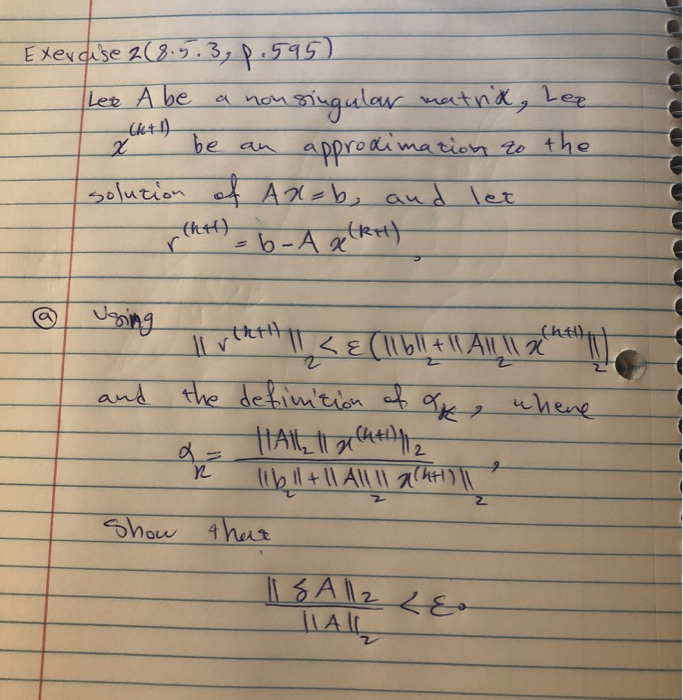 Exercise 2 (8.5.3, p.595)
Let A be a nonsingular matrix, Let
x^(k+1) be an approximation to the
solution of Ax=b, and let
r^(k+1) = b - A x^(k+1),
(a) Using
||r^(k+1)||_2 < ε(||b||_2 + ||A||_2 ||x^(k+1)||_2)
and the definition of α_k, where
α_k = ||A||_2 ||x^(k+1)||_2 / (||b||_2 + ||A||_2 ||x^(k+1)||_2),
Show that
||δA||_2 / ||A||_2 < ε.